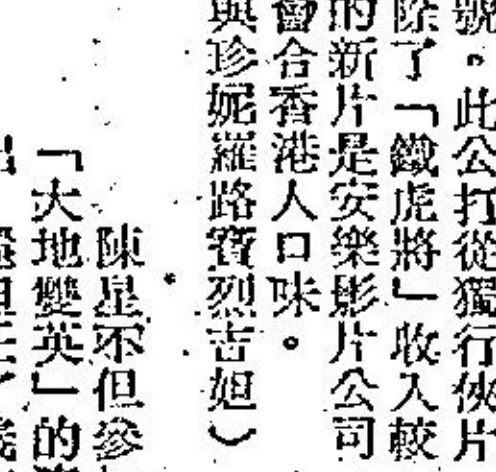 號。此公打從獨行俠片
除了「鐵虎將」收入較
的新片是安樂影片公司
會合香港人口味。
與珍妮羅路賓烈吉妲）
陳星不但參
「大地雙英」的